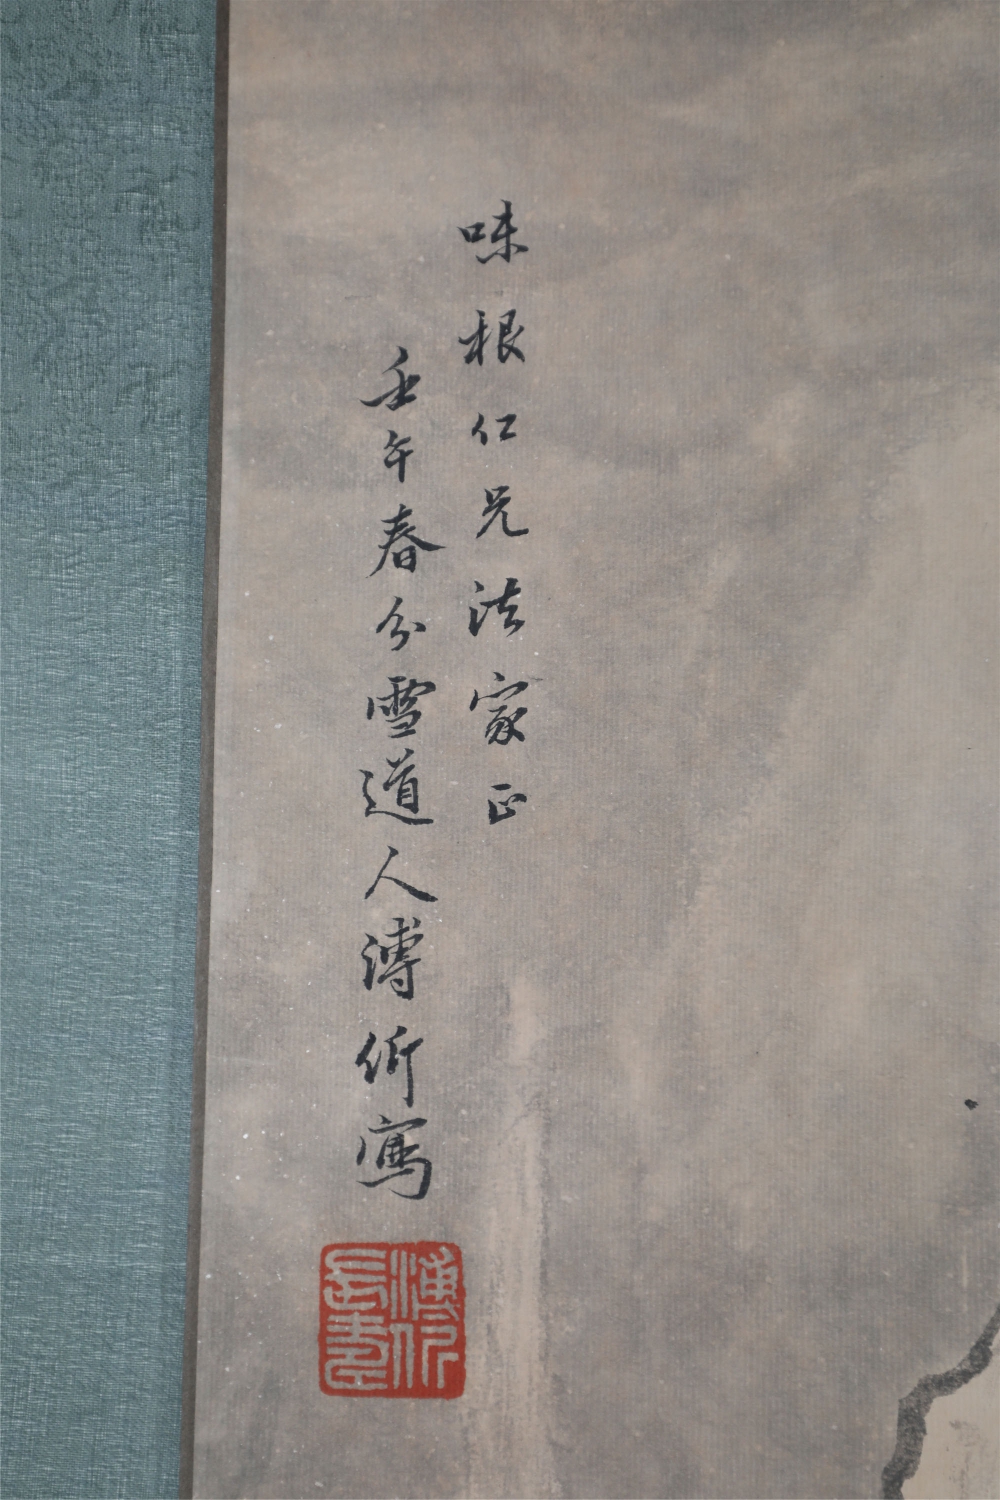 味根仁兄法家正
壬午春分雪道人溥伒寫
溥伒